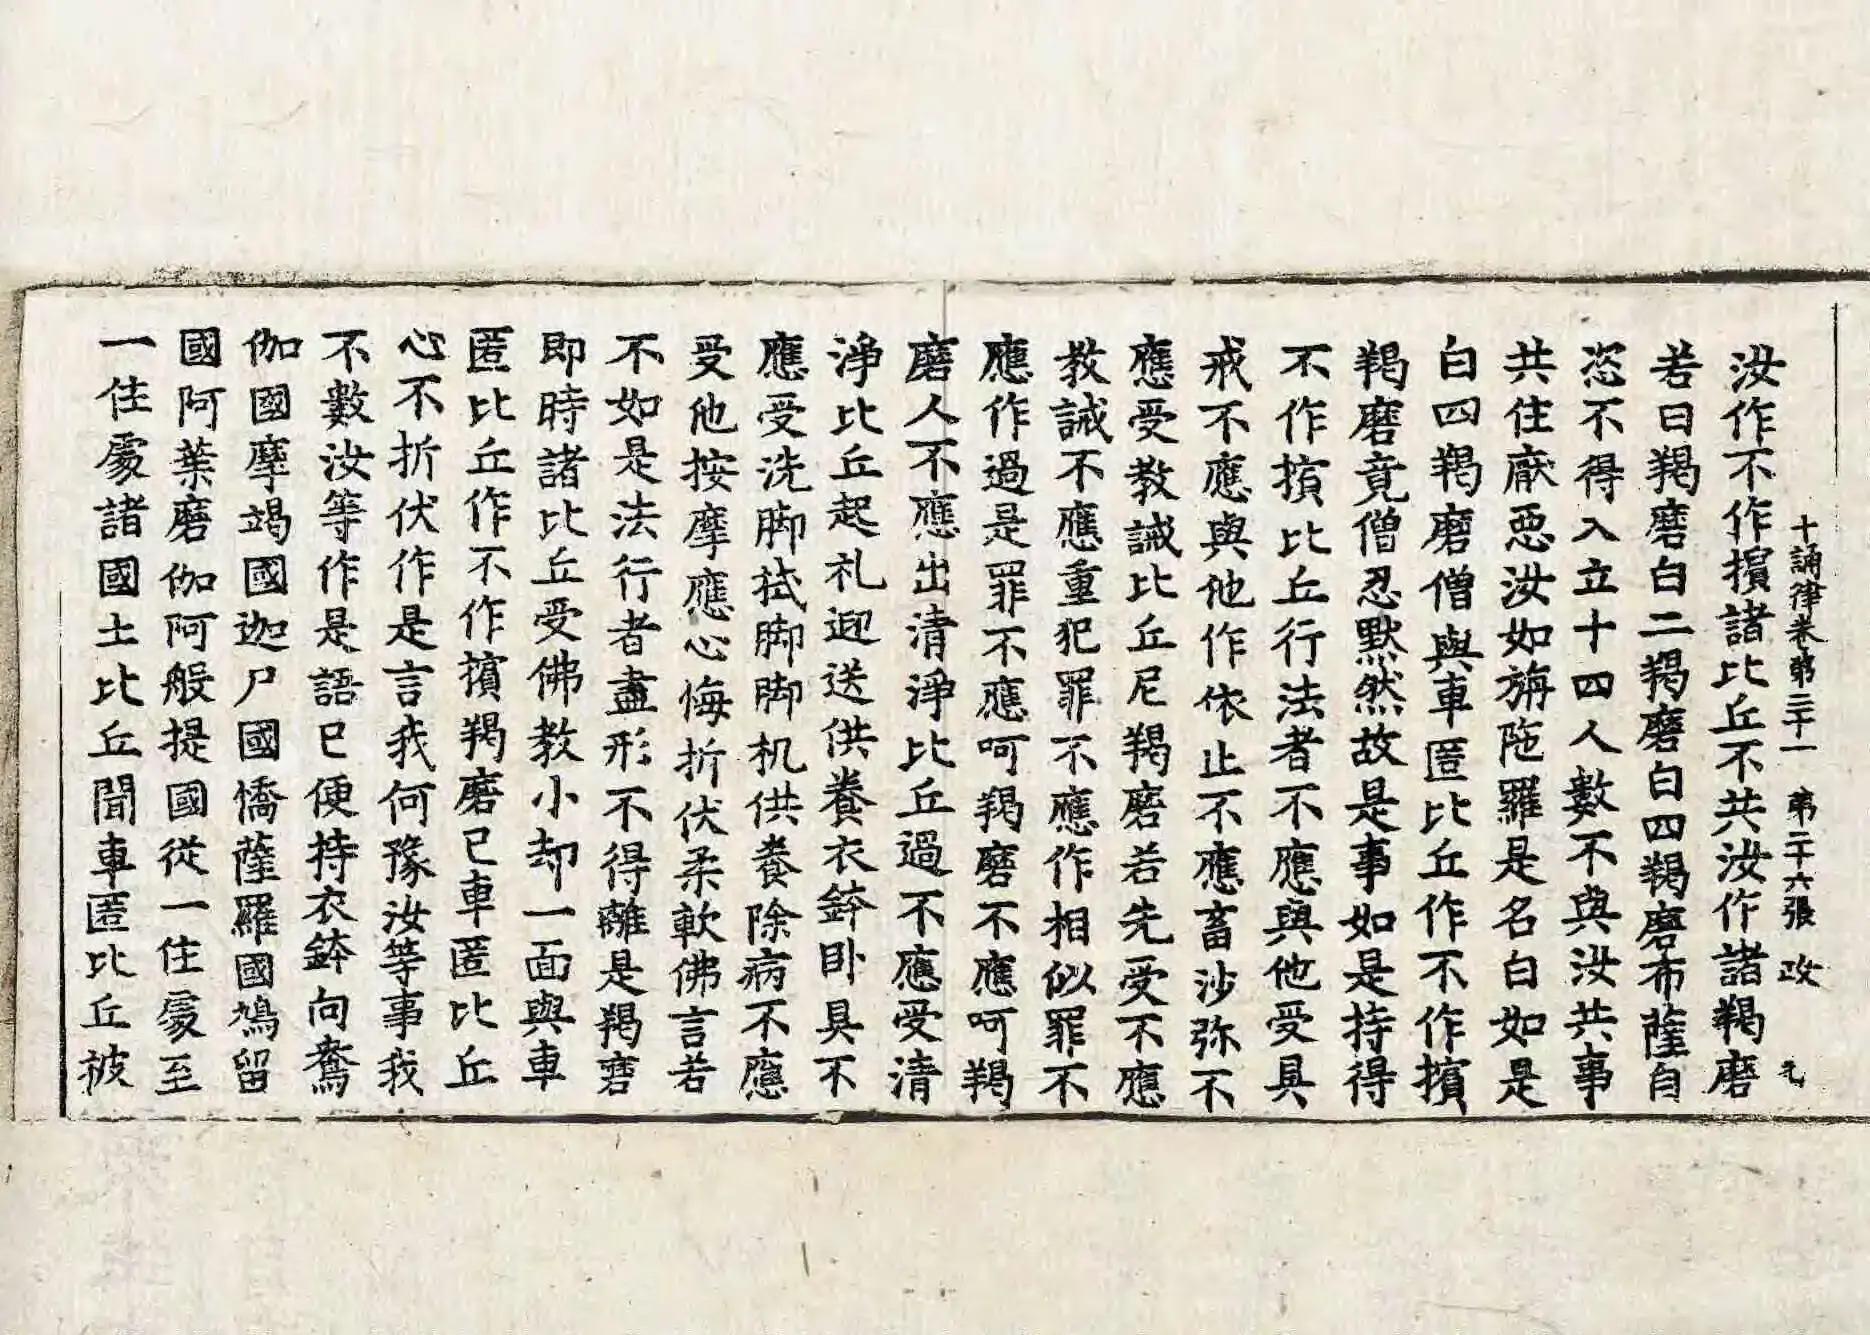 十誦律卷第三十一 第二十六張 改 九
汝作不作擯諸比丘不共汝作諸羯磨
若曰羯磨白二羯磨白四羯磨布薩自
恣不得入立十四人數不與汝共事
共住厭惡汝如旃陁羅是名白如是
白四羯磨僧與車匿比丘作不作擯
羯磨竟僧忍默然故是事如是持得
不作擯比丘行法者不應與他受具
戒不應與他作依止不應畜沙弥不
應受教誡比丘尼羯磨若先受不應
教誡不應重犯罪不應作相似罪不
應作過是罪不應呵羯磨不應呵羯
磨人不應出清淨比丘過不應受清
淨比丘起礼迎送供養衣鉢卧具不
應受洗脚拭脚脚机供養除病不應
受他按摩應心悔折伏柔軟佛言若
不如是法行者盡形不得離是羯磨
即時諸比丘受佛教小却一面與車
匿比丘作不作擯羯磨已車匿比丘
心不折伏作是言我何豫汝等事我
不數汝等作是語已便持衣鉢向鴦
伽國摩竭國迦尸國憍薩羅國鳩留
國阿葉磨伽阿般提國從一住處至
一住處諸國土比丘聞車匿比丘被